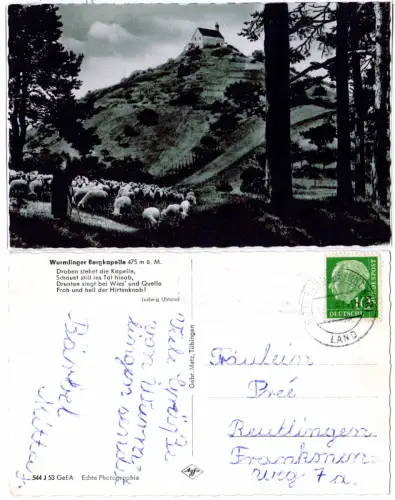 Wurmlinger Bergkapelle 475 m ü. M.
Droben stehet die Kapelle,
Schauet still ins Tal hinab,
Drunten singt bei Wies' und Quelle
Froh und hell der Hirtenknab!
Ludwig Uhland
Viele Grüße
von
Bärbel
544 J 53 GeEA Echte Photographie
Gebr. Metz, Tübingen
Agfa
10
DEUTSCHE
BUNDESPOST
LAND
Fräulein
Preé
Reutlingen
Frankonen-
weg 7a.